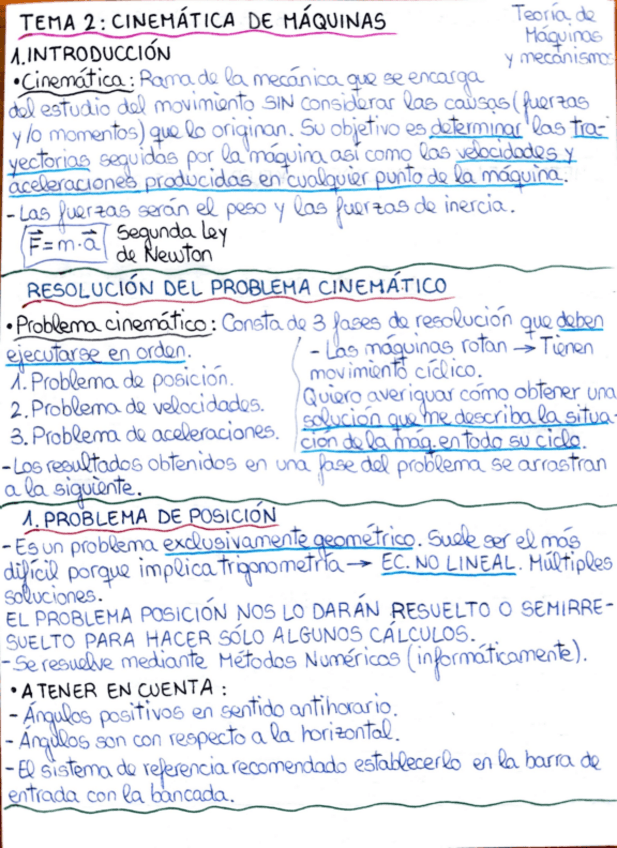 TEMA 2: CINEMÁTICA DE MÁQUINAS
Teoría de
Máquinas
y mecanismos
1. INTRODUCCIÓN
• Cinemática: Rama de la mecánica que se encarga
del estudio del movimiento SIN considerar las causas (fuerzas
y/o momentos) que lo originan. Su objetivo es determinar las tra-
yectorias seguidas por la máquina así como las velocidades y
aceleraciones producidas en cualquier punto de la máquina.
- Las fuerzas serán el peso y las fuerzas de inercia.
F = m·a Segunda Ley
de Newton
RESOLUCIÓN DEL PROBLEMA CINEMÁTICO
• Problema cinemático: Consta de 3 fases de resolución que deben
ejecutarse en orden.
1. Problema de posición.
2. Problema de velocidades.
3. Problema de aceleraciones.
- Las máquinas rotan → Tienen
movimiento cíclico.
Quiero averiguar cómo obtener una
solución que me describa la situa-
ción de la máq. en todo su ciclo.
- Los resultados obtenidos en una fase del problema se arrastran
a la siguiente.
1. PROBLEMA DE POSICIÓN
- Es un problema exclusivamente geométrico. Suele ser el más
difícil porque implica trigonometría → EC. NO LINEAL. Múltiples
soluciones.
EL PROBLEMA POSICIÓN NOS LO DARÁN RESUELTO O SEMIRRE-
SUELTO PARA HACER SÓLO ALGUNOS CÁLCULOS.
- Se resuelve mediante Métodos Numéricos (informáticamente).
• A TENER EN CUENTA:
- Ángulos positivos en sentido antihorario.
- Ángulos son con respecto a la horizontal.
- El sistema de referencia recomendado establecerlo en la barra de
entrada con la bancada.